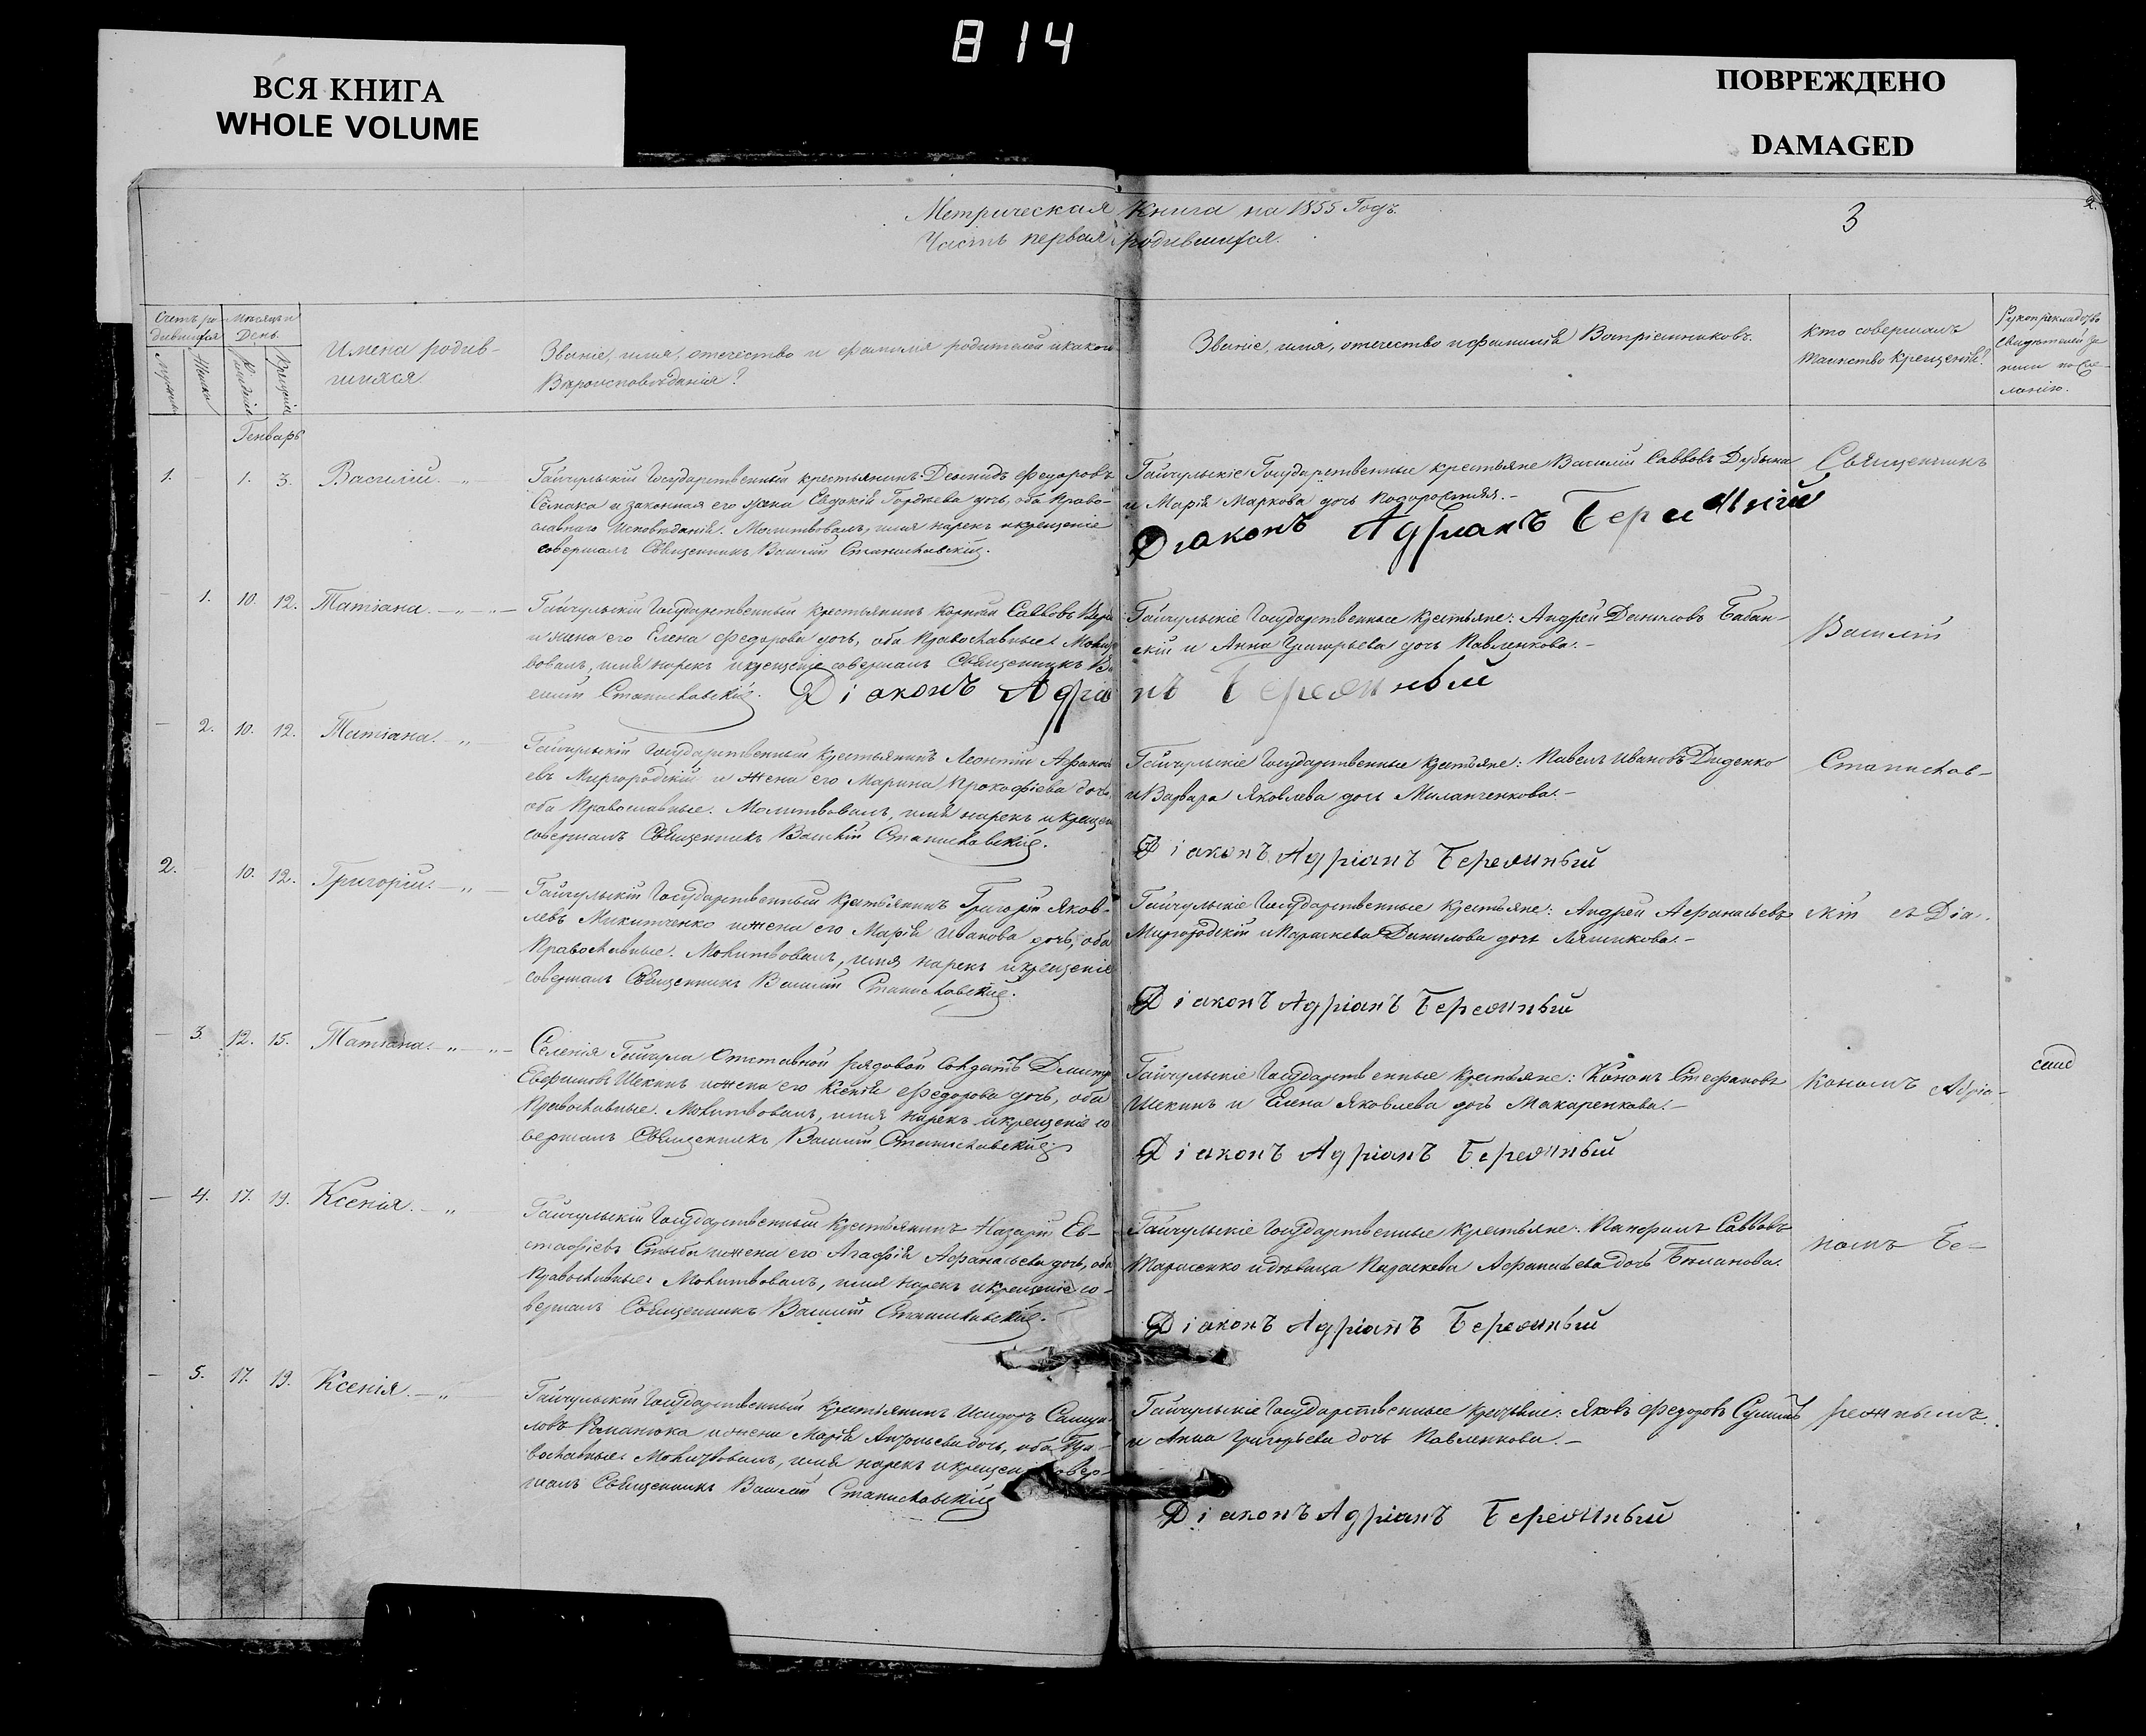 814
ВСЯ КНИГА
WHOLE VOLUME
ПОВРЕЖДЕНО
DAMAGED
Метрическая Книга на 1855 Годъ.
Часть первая, о родившихся.
3
2.
Счетъ ро-
дившихся
Мѣсяцъ и
День.
Мужска
Женска
Рожденія
Крещенія
Имена родив-
шихся
Званіе, имя, отечество и фамилія родителей и какого
Вѣроисповѣданія?
Званіе, имя, отечество и фамилія Воспріемниковъ.
Кто совершалъ
таинство крещенія?
Рукоприкладство
свидѣтелей за-
писи по же-
ланію.
Генварь
1. 1. 3. Василій.
Гайчульскій Государственный крестьянинъ Демидъ Федоровъ
Семака и законная его жена Евдокія Гордѣева дочь, оба Право-
славнаго исповѣданія. Молитвовалъ, имя нарекъ и крещеніе
совершалъ Священникъ Василій Станиславскій.
Гайчульскіе Государственные крестьяне Василій Саввовъ
и Марія Маркова дочь
Діаконъ Адріанъ Бережный
Священникъ
1. 10. 12. Татіана.
Гайчульскій Государственный крестьянинъ Корній Саввовъ
и жена его Елена Федорова дочь, оба Православные. Молит
вовалъ, имя нарекъ и крещеніе совершалъ Священникъ Ва
силій Станиславскій.
Гайчульскіе Государственные крестьяне: Андрей Даниловъ Бабан-
скій и Анна Григорьева дочь Павленкова.
Діаконъ Адріанъ Бережный
Василій
2. 10. 12. Татіана.
Гайчульскій Государственный крестьянинъ Леонтій Афанась
евъ Миргородскій и жена его Марина Прокофіева дочь,
оба Православные. Молитвовалъ, имя нарекъ и крещен
совершалъ Священникъ Василій Станиславскій.
Гайчульскіе Государственные крестьяне: Павелъ Ивановъ Диденко
и Варвара Яковлева дочь
Діаконъ Адріанъ Бережный
Станислав-
2. 10. 12. Григорій.
Гайчульскій Государственный крестьянинъ Григорій Яков-
левъ Микитченко и жена его Марія Иванова дочь, оба
Православные. Молитвовалъ, имя нарекъ и крещеніе
совершалъ Священникъ Василій Станиславскій.
Гайчульскіе Государственные крестьяне: Андрей Афанасьевъ
Миргородскій и Параскева Данилова дочь
Діаконъ Адріанъ Бережный
скій съ Діа-
3. 12. 15. Татіана.
Селенія Гайчула Отставной рядовой Солдатъ Дмитр
Евфимовъ Шекинъ и жена его Ксенія Федорова дочь, оба
Православные. Молитвовалъ, имя нарекъ и крещеніе со
вершалъ Священникъ Василій Станиславскій.
Гайчульскіе Государственные крестьяне: Кононъ Стефановъ
Шекинъ и Елена Яковлева дочь Макаренкова.
Діаконъ Адріанъ Бережный
кономъ Адріа-
4. 17. 19. Ксенія.
Гайчульскій Государственный крестьянинъ Назарій Ев-
стафіевъ и жена его Агафія Афанасьева дочь, оба
Православные. Молитвовалъ, имя нарекъ и крещеніе со-
вершалъ Священникъ Василій Станиславскій.
Гайчульскіе Государственные крестьяне: Панфилъ Саввовъ
Тарасенко и дѣвица Параскева Афанасьева дочь
Діаконъ Адріанъ Бережный
номъ Бе-
5. 17. 19. Ксенія.
Гайчульскій Государственный крестьянинъ Исидоръ Самуи
ловъ Романюка и жена Марія дочь, оба Пра-
вославные. Молитвовалъ, имя нарекъ и крещеніе совер-
шалъ Священникъ Василій Станиславскій
Гайчульскіе Государственные крестьяне: Яковъ Федоровъ
и Анна Григорьева дочь Павленкова.
Діаконъ Адріанъ Бережный
режнымъ.